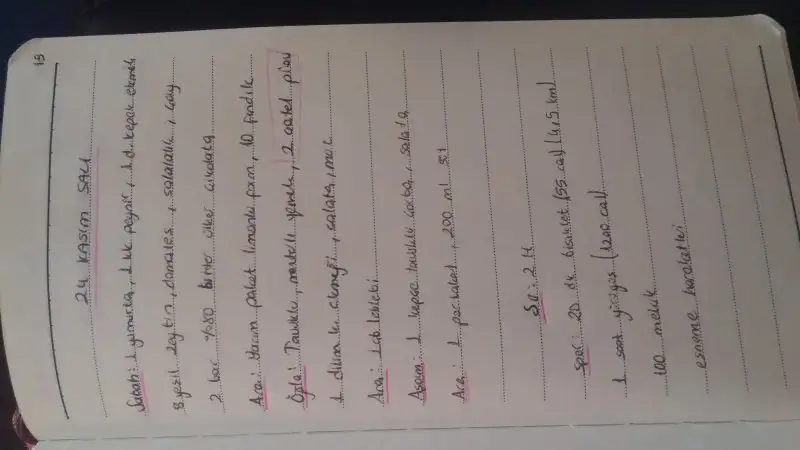 19
24 KASIM SALI
Sabah: 1 yumurta, 1 kk peynir, 1 d. kepek ekmek
8 yeşil zeytin, domates, salatalık, çay
2 bar %80 bitter ülker çikolata
Ara: Yarım paket limonlu form, 10 fındık
Öğle: Tavuklu, mantarlı yemek, 2 çatal pilav
1 dilim k. ekmeği, salata,
Ara: 1 çb leblebi
Akşam: 1 kepçe tavuklu çorba, salata
Ara: 1 portakal, 200 ml süt
Su: 2 lt
Spor: 20 dk bisiklet (55 cal) (4,5 km)
1 saat yürüyüş (200 cal)
100 mekik
esneme hareketleri